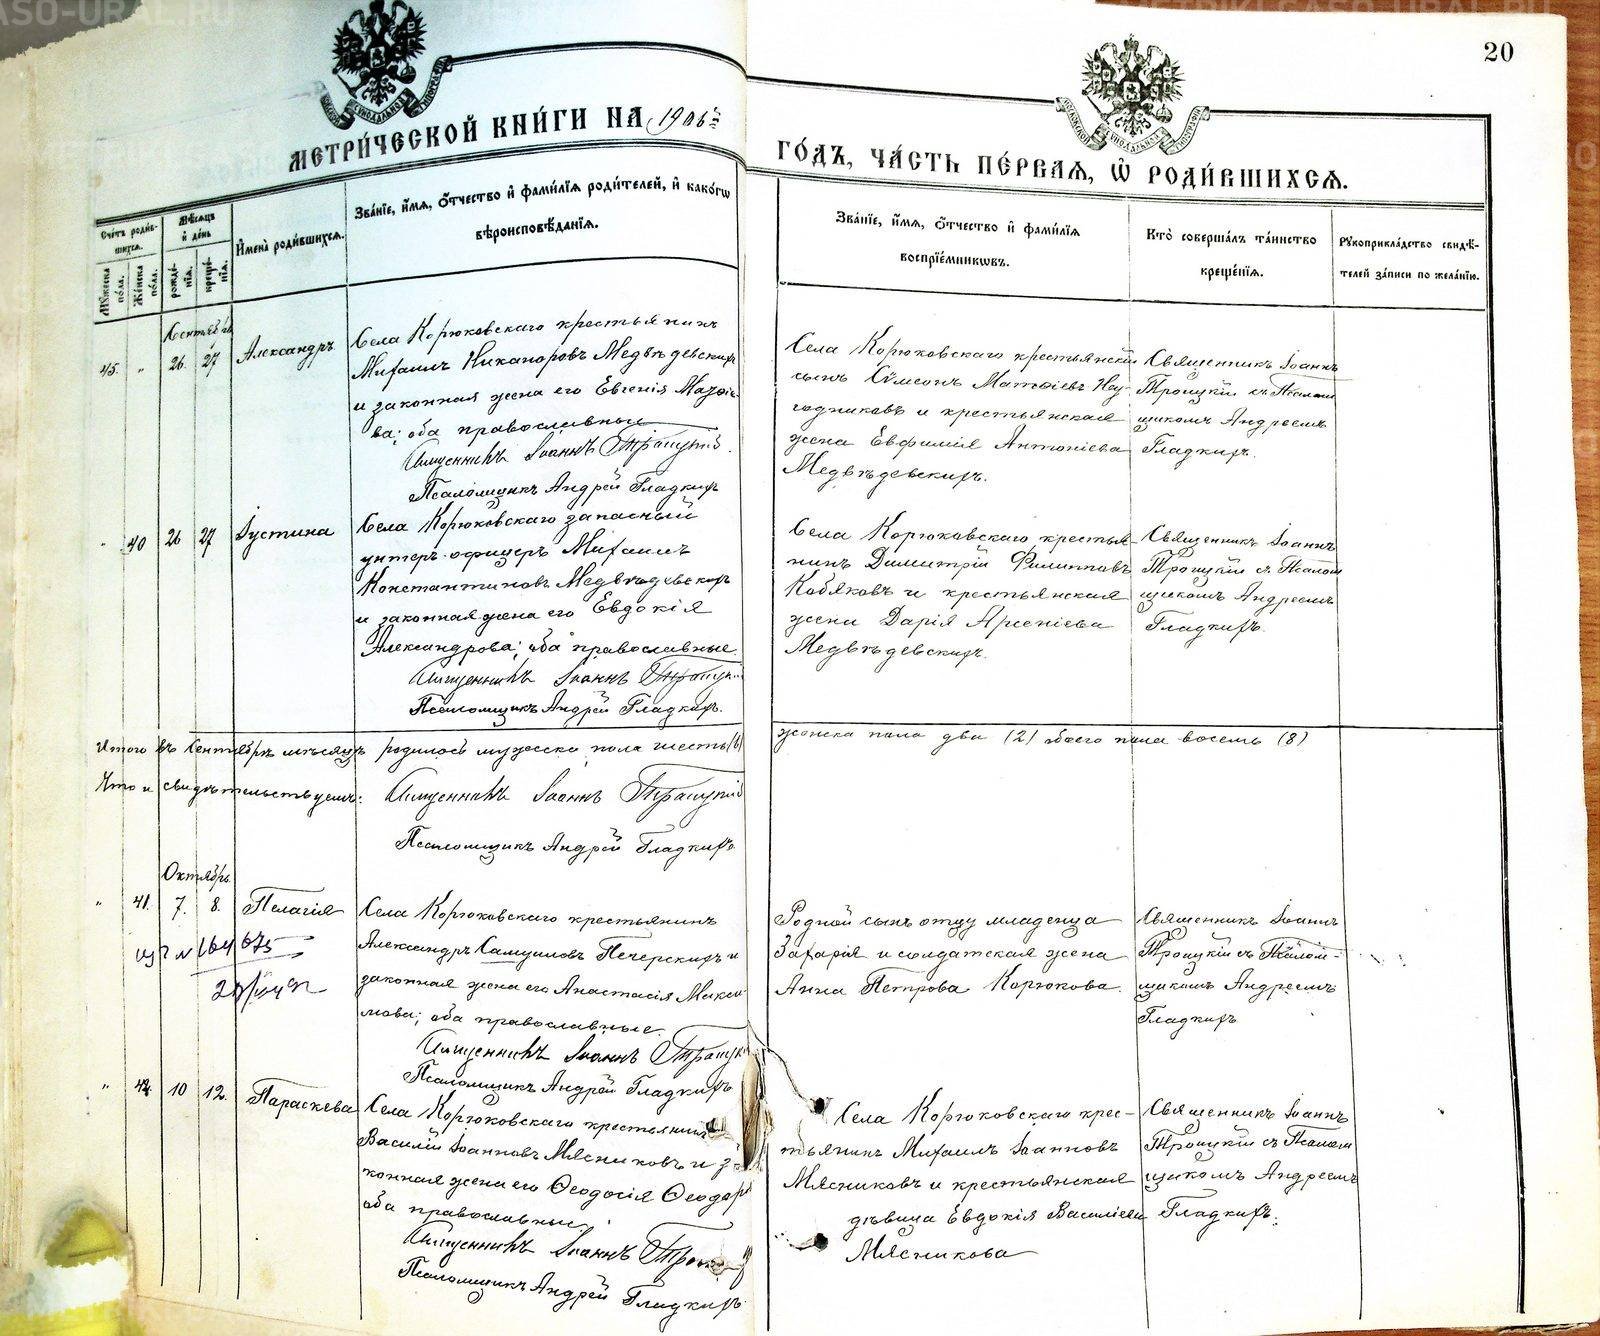 20
МЕТРИ́ЧЕСКОЙ КНИ́ГИ НА 1906й
ГО́ДЪ, ЧА́СТЬ ПЕ́РВАЯ, Ѡ҆ РОДИ́ВШИХСЯ.
Сче́тъ роди́в-
шихся.
Му́жеска по́ла.
Же́нска по́ла.
Мѣ́сяцъ и҆ де́нь
рожде́нїя.
креще́нїя.
И҆мена̀ роди́вшихся.
Зва́нїе, и҆́мя, ѻ҆́тчество и҆ фами́лїя роди́телей, и҆ како́гѡ
вѣроисповѣ́данїя.
Зва́нїе, и҆́мя, ѻ҆́тчество и҆ фами́лїя
воспрїе́мникѡвъ.
Кто̀ соверша́лъ та́инство
креще́нїя.
Рукоприкла́дство свидѣ́-
телей за́писи по жела́нїю.
Сентябрь
45. „ 26. 27 Александръ
Села Корюковскаго крестьянинъ
Михаилъ Никаноровъ Медвѣдевскихъ
и законная жена его Евгенія Матѳіе-
ва; оба православные
Священникъ Іоаннъ Троицкій.
Псаломщикъ Андрей Гладкихъ
Села Корюковскаго крестьянскій
сынъ Сѵмеонъ Матѳіевъ
и крестьянская
жена Евфимія Антоніева
Медвѣдевскихъ.
Священникъ Іоаннъ
Троицкій съ Псалом
щикомъ Андреемъ
Гладкихъ.
„ 40 26 27 Іустина
Села Корюковскаго запасный
унтеръ-офицеръ Михаилъ
Константиновъ Медвѣдевскихъ
и законная жена его Евдокія
Александрова; оба православные.
Священникъ Іоаннъ Троицкій
Псаломщикъ Андрей Гладкихъ.
Села Корюковскаго крестья-
нинъ Димитрій Филипповъ
Кобяковъ и крестьянская
жена Дарія Арсеніева
Медвѣдевскихъ.
Священникъ Іоаннъ
Троицкій съ Псалом
щикомъ Андреемъ
Гладкихъ.
Итого въ Сентябрѣ мѣсяцѣ родилось мужеска пола шесть (6)
женска пола два (2) обоего пола восемь (8)
Что и свидѣтельствуемъ: Священникъ Іоаннъ Троицкій
Псаломщикъ Андрей Гладкихъ
Октябрь.
„ 41. 7. 8. Пелагія
Села Корюковскаго крестьянинъ
Александръ Самуиловъ Печерскихъ и
законная жена его Анастасія Макси-
мова; оба православные.
Священникъ Іоаннъ Троицкій
Псаломщикъ Андрей Гладкихъ
Родной сынъ отцу младенца
Захарія и солдатская жена
Анна Петрова Корюкова.
Священникъ Іоаннъ
Троицкій съ Псалом-
щикомъ Андреемъ
Гладкихъ
„ 42. 10 12. Параскева
Села Корюковскаго крестьянинъ
Василій Іоанновъ Мясниковъ и за
конная жена его Ѳеодосія Ѳеодор
оба православные.
Священникъ Іоаннъ Троицкій
Псаломщикъ Андрей Гладкихъ.
Села Корюковскаго крес-
тьянинъ Михаилъ Іоанновъ
Мясниковъ и крестьянская
дѣвица Евдокія Василіева
Мясникова
Священникъ Іоаннъ
Троицкій съ Псалом
щикомъ Андреемъ
Гладкихъ.